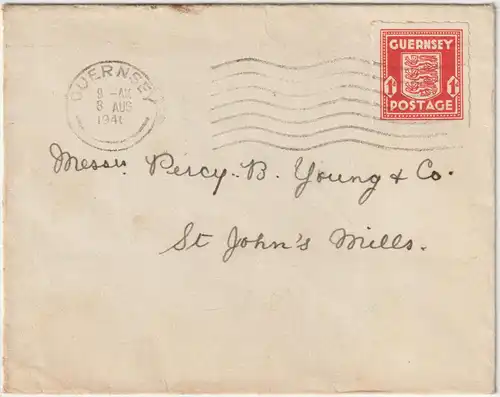 GUERNSEY
9 - AM
8 AUG
1941
GUERNSEY
1D 1D
POSTAGE
Messrs Percy. B. Young & Co.
St John's Mills.